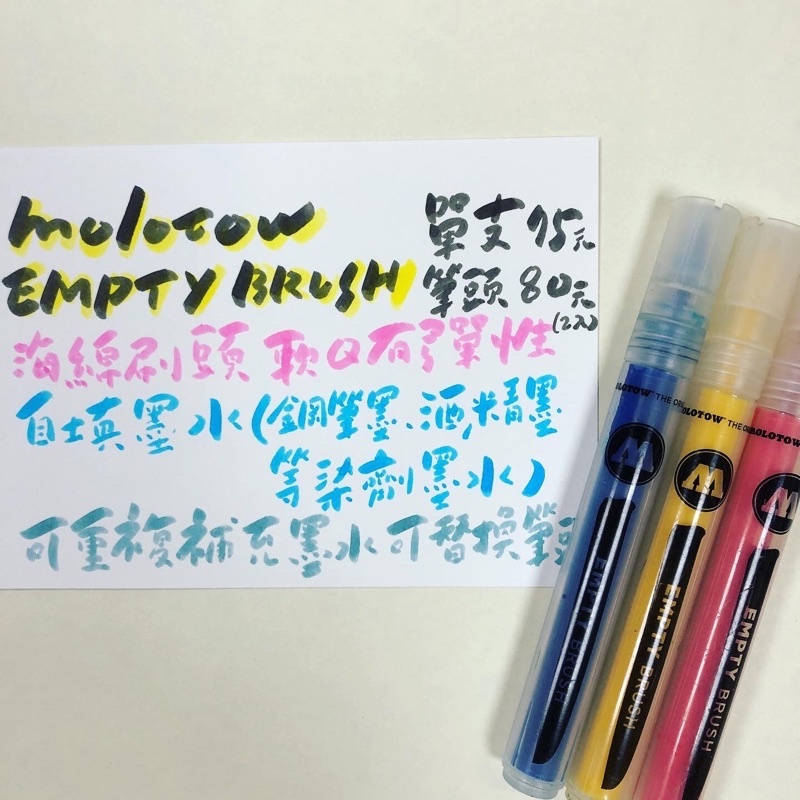 molotow
EMPTY BRUSH
單支 75元
筆頭 80元
(2入)
海綿刷頭 軟Q有彈性
自填墨水(鋼筆墨、酒精墨
等染劑墨水)
可重複補充墨水 可替換筆頭
MOLOTOW™ THE ORI
EMPTY BRUSH
MOLOTOW™ THE OR
EMPTY BRUSH
MOLOTOW
EMPTY BRUSH